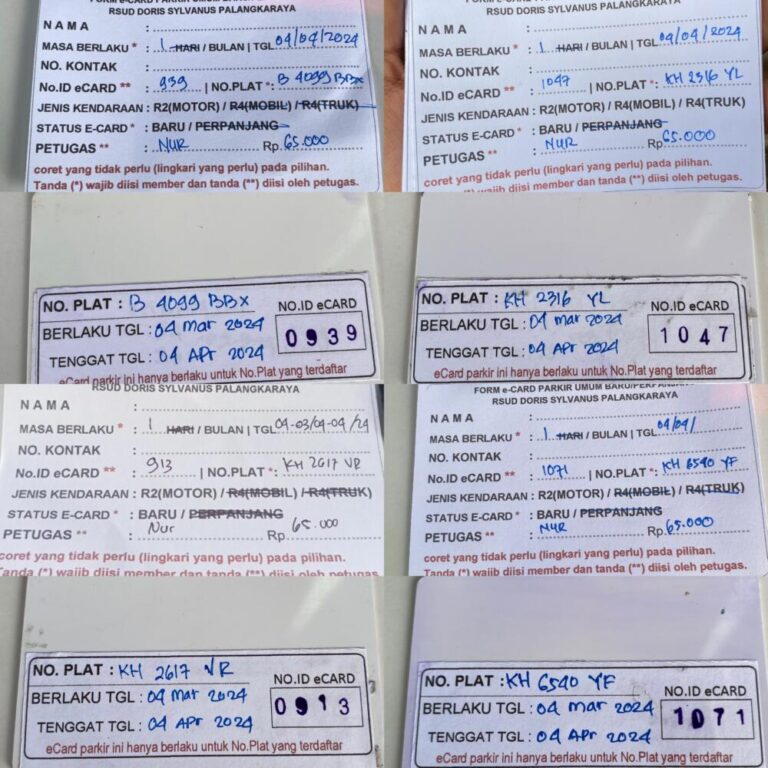 RSUD DORIS SYLVANUS PALANGKARAYA
NAMA :
MASA BERLAKU * : 1 HARI / BULAN | TGL 04/04/2024
NO. KONTAK :
No.ID eCARD ** : 939 | NO.PLAT *: B 4099 BBX
JENIS KENDARAAN : R2(MOTOR) / R4(MOBIL) / R4(TRUK)
STATUS E-CARD * : BARU / PERPANJANG
PETUGAS ** : NUR Rp. 65.000
coret yang tidak perlu (lingkari yang perlu) pada pilihan.
Tanda (*) wajib diisi member dan tanda (**) diisi oleh petugas.
RSUD DORIS SYLVANUS PALANGKARAYA
NAMA :
MASA BERLAKU * : 1 HARI / BULAN | TGL 04/04/2024
NO. KONTAK :
No.ID eCARD ** : 1047 | NO.PLAT *: KH 2316 YL
JENIS KENDARAAN : R2(MOTOR) / R4(MOBIL) / R4(TRUK)
STATUS E-CARD * : BARU / PERPANJANG
PETUGAS ** : NUR Rp. 65.000
coret yang tidak perlu (lingkari yang perlu) pada pilihan.
Tanda (*) wajib diisi member dan tanda (**) diisi oleh petugas.
NO. PLAT : B 4099 BBX
BERLAKU TGL : 04 Mar 2024
TENGGAT TGL : 04 Apr 2024
NO.ID eCARD
0939
eCard parkir ini hanya berlaku untuk No.Plat yang terdaftar
NO. PLAT : KH 2316 YL
BERLAKU TGL : 04 Mar 2024
TENGGAT TGL : 04 Apr 2024
NO.ID eCARD
1047
eCard parkir ini hanya berlaku untuk No.Plat yang terdaftar
RSUD DORIS SYLVANUS PALANGKARAYA
NAMA :
MASA BERLAKU * : 1 HARI / BULAN | TGL 04-03/04-04/24
NO. KONTAK :
No.ID eCARD ** : 913 | NO.PLAT *: KH 2617 VR
JENIS KENDARAAN : R2(MOTOR) / R4(MOBIL) / R4(TRUK)
STATUS E-CARD * : BARU / PERPANJANG
PETUGAS ** : Nur Rp. 65.000
coret yang tidak perlu (lingkari yang perlu) pada pilihan.
Tanda (*) wajib diisi member dan tanda (**) diisi oleh petugas.
FORM e-CARD PARKIR UMUM BARU/PERPANJANG
RSUD DORIS SYLVANUS PALANGKARAYA
NAMA :
MASA BERLAKU * : 1 HARI / BULAN | TGL 04/04/
NO. KONTAK :
No.ID eCARD ** : 1071 | NO.PLAT *: KH 6540 YF
JENIS KENDARAAN : R2(MOTOR) / R4(MOBIL) / R4(TRUK)
STATUS E-CARD * : BARU / PERPANJANG
PETUGAS ** : NUR Rp. 65.000
coret yang tidak perlu (lingkari yang perlu) pada pilihan.
Tanda (*) wajib diisi member dan tanda (**) diisi oleh petugas.
NO. PLAT : KH 2617 VR
BERLAKU TGL : 04 Mar 2024
TENGGAT TGL : 04 Apr 2024
NO.ID eCARD
0913
eCard parkir ini hanya berlaku untuk No.Plat yang terdaftar
NO. PLAT : KH 6540 YF
BERLAKU TGL : 04 Mar 2024
TENGGAT TGL : 04 Apr 2024
NO.ID eCARD
1071
eCard parkir ini hanya berlaku untuk No.Plat yang terdaftar